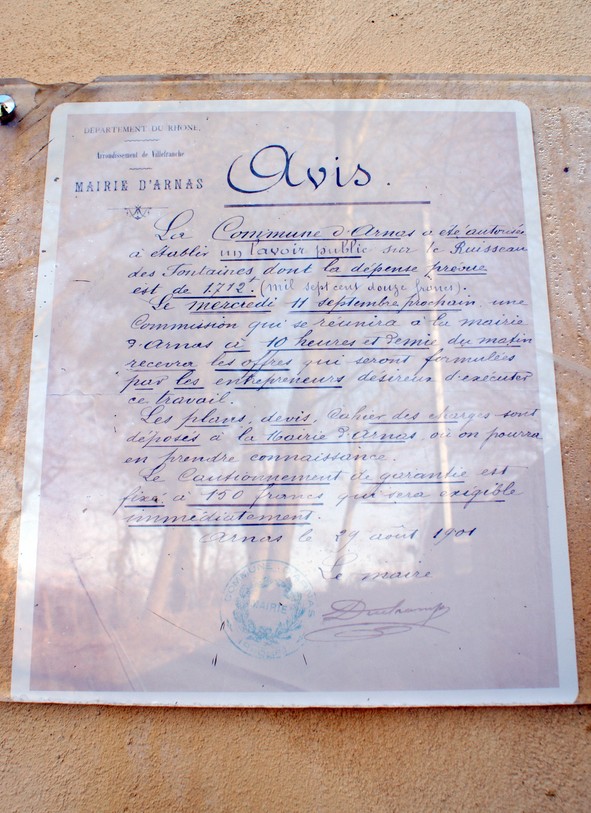 DÉPARTEMENT DU RHÔNE.
Arrondissement de Villefranche
MAIRIE D'ARNAS
Avis.
La Commune d'Arnas a été autorisée
à établir un lavoir public sur le Ruisseau
des Fontaines dont la dépense prévue
est de 1.712f. (mil sept cent douze francs).
Le mercredi 11 septembre prochain, une
Commission qui se réunira à la mairie
d'Arnas à 10 heures et demie du matin
recevra les offres qui seront formulées
par les entrepreneurs désireux d'exécuter
ce travail.
Les plans, devis, Cahier des charges sont
déposés à la Mairie d'Arnas, où on pourra
en prendre connaissance.
Le Cautionnement de garantie est
fixé à 150 francs qui sera exigible
immédiatement.
Arnas le 29 août 1901
Le maire
COMMUNE D'ARNAS
MAIRIE
(RHÔNE)
Duchamp